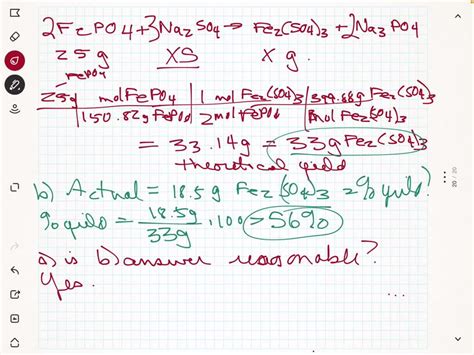 2FePO4 + 3Na2SO4 → Fe2(SO4)3 + 2Na3PO4
25g XS X g.
FePO4
25g | mol FePO4 | 1 mol Fe2(SO4)3 | 399.88g Fe2(SO4)3
| 150.82g FePO4 | 2mol FePO4 | 1mol Fe2(SO4)3
= 33.14g = 33g Fe2(SO4)3
theoretical yield
b) Actual = 18.5 g Fe2(SO4)3 = % yield?
% yield = 18.5g / 33g . 100 > 56%
is b) answer reasonable?
Yes.
20 / 20